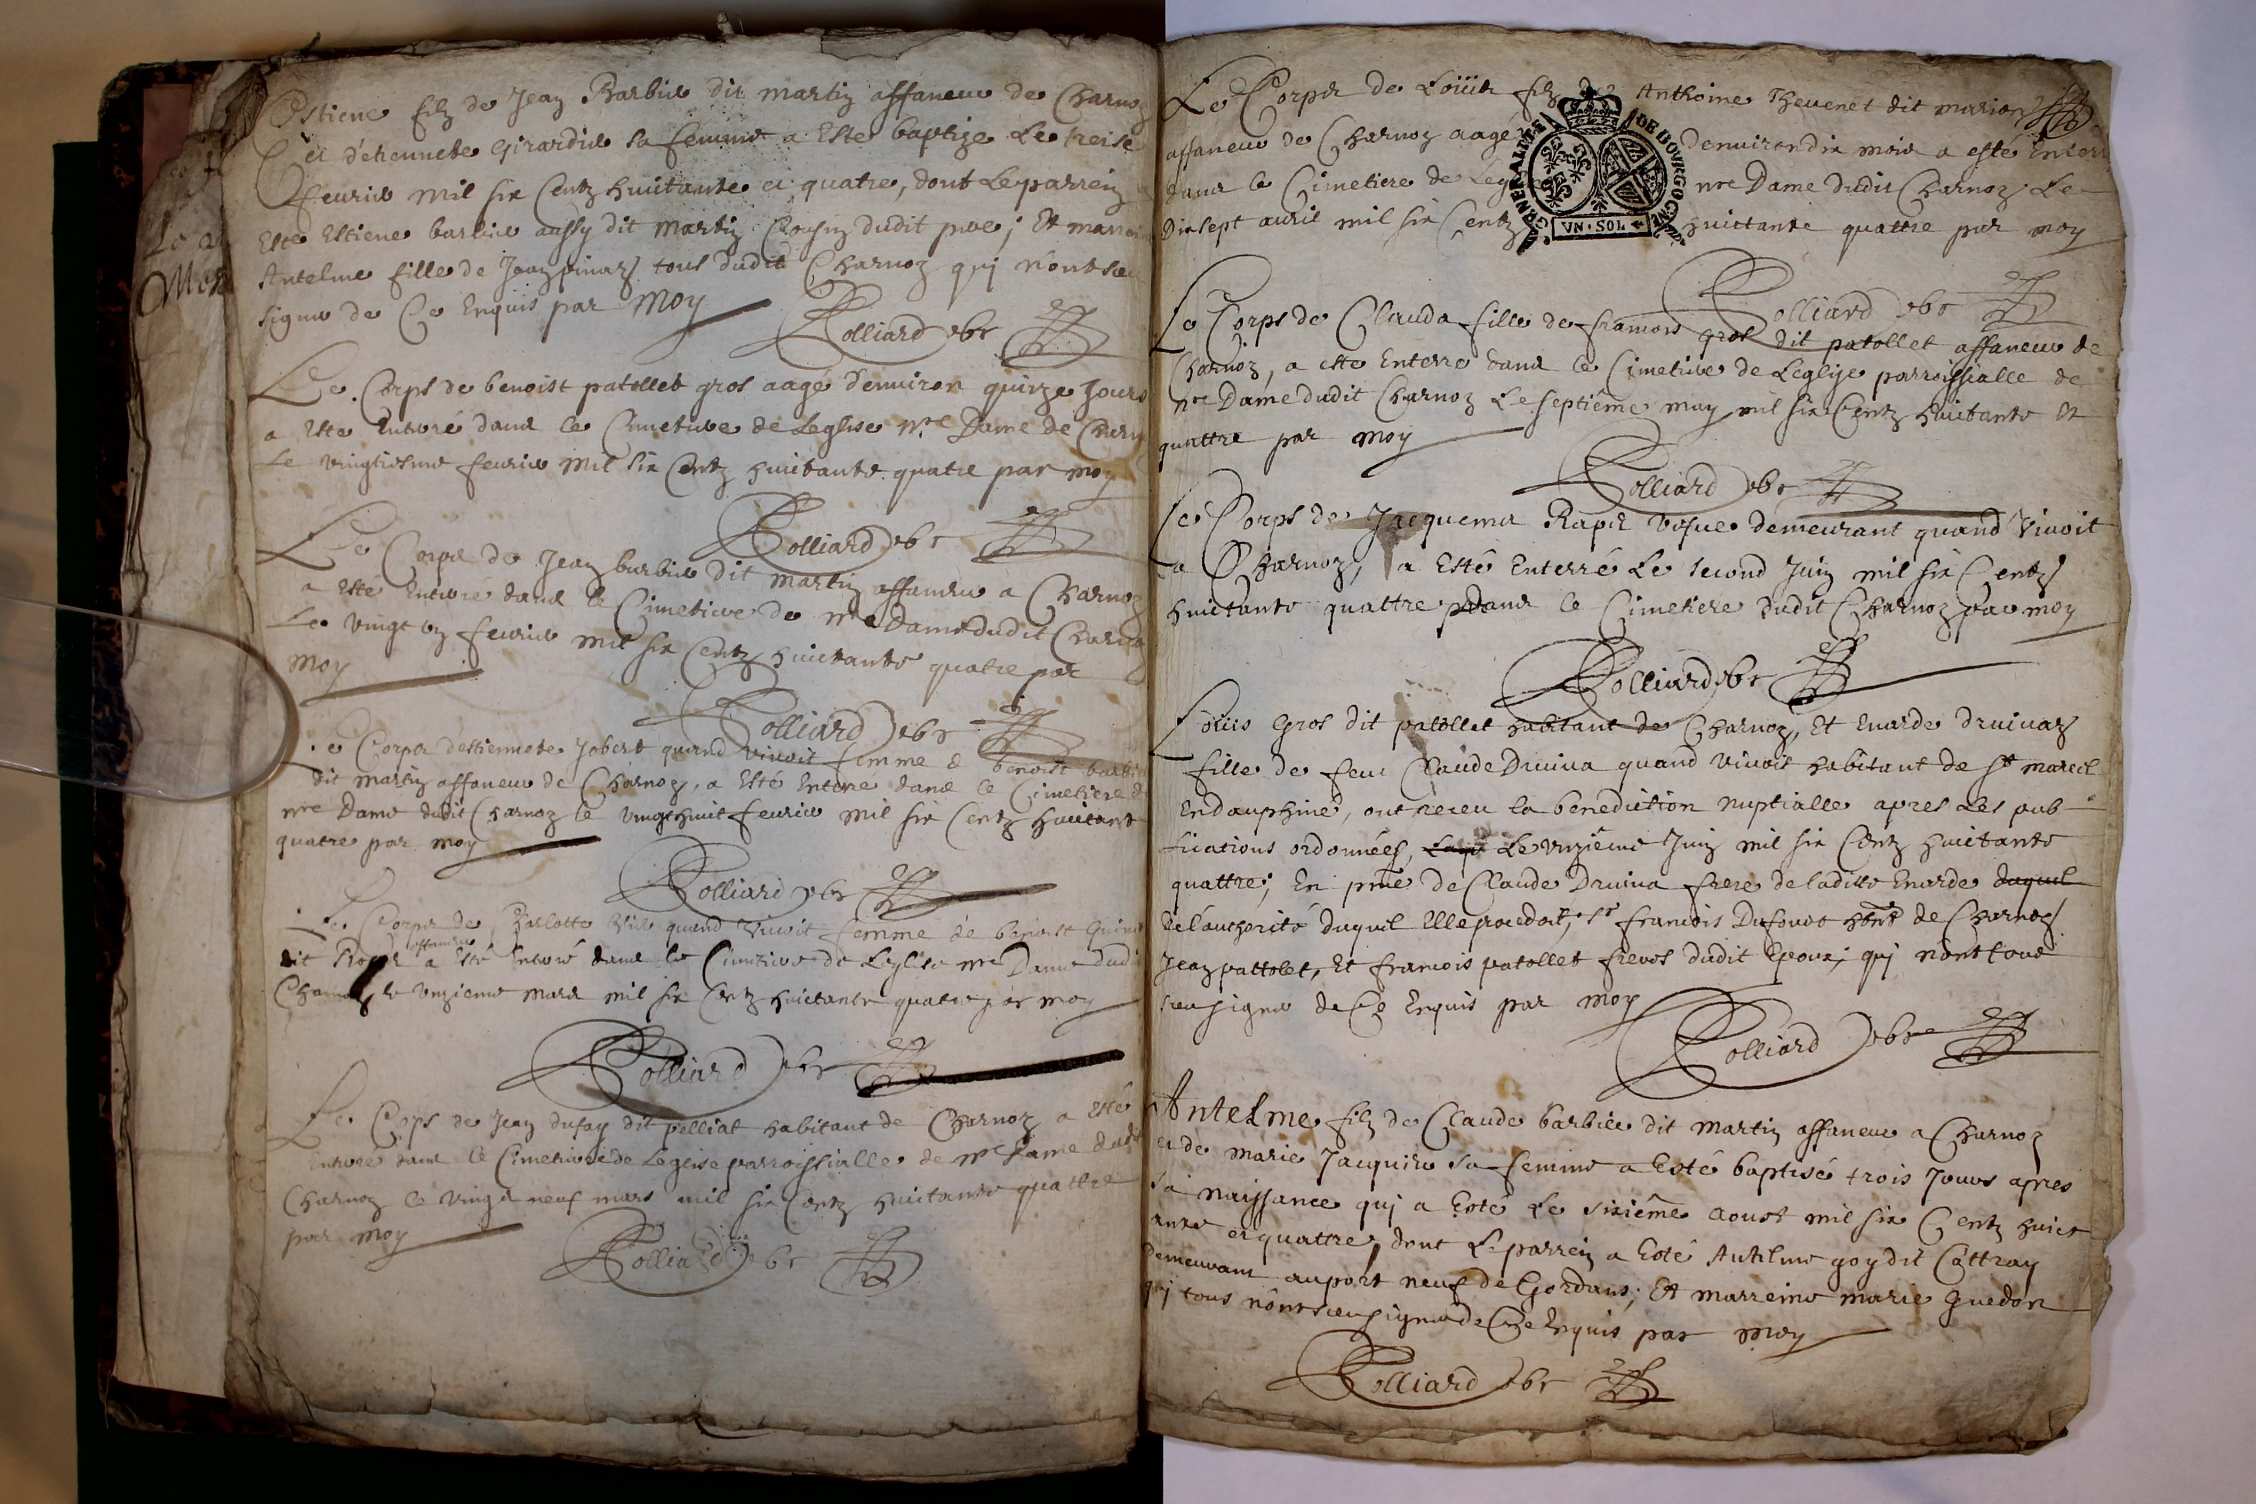 Estiene filz de Jean Barbier dit martin affaneur de Charnoz
et d'etiennete Girardie sa femme a Esté baptizé Le treise
feurier mil six Centz huictante et quatre, dont Le parrein a
Esté Estiene barbier aussy dit Martin Cousin dudit pere; Et marreine
Antelme fille de Jean pinaz tous dudit Charnoz qui n'ont sceu
signer de Ce Enquis par Moy
Rolliard pbr
Le Corps de benoist patollet gros aagé d'enuiron quinze Jours
a Esté Enterré dans le Cimetiere de Leglise nre Dame de Charnoz
Le vingtiesme feurier mil six Centz huictante quatre par moy
Rolliard pbr
Le Corps de Jean barbier dit Martin affaneur a Charnoz
a Esté Enterré dans le Cimetiere de nre Dame dudit Charnoz
Le vingt un feurier mil six Centz huictante quatre par
moy
Rolliard pbr
Le Corps destiennete Jobert quand viuoit femme de benoist barbier
dit martin affaneur de Charnoz, a Esté Enterré dans le Cimetiere de
nre Dame dudit Charnoz le vingt huit feurier mil six Centz huictante
quatre par moy
Rolliard pbr
Le Corps de Charlotte quand viuoit femme de benoist
dit affaneur a Esté Enterré dans le Cimetiere de Leglise nre Dame dudit
Charnoz le unzieme mars mil six Centz huictante quatre par moy
Rolliard pbr
Le Corps de Jean dufay dit pelliat habitant de Charnoz a Esté
Enterré dans le Cimetiere de Leglise parroissialle de nre Dame dudit
Charnoz le vingt neuf mars mil six Centz huictante quattre
par moy
Rolliard pbr
Le Corps de Loüis filz de Anthoine Theuenet dit marion
affaneur de Charnoz aagé denuiron dix mois a esté Enterré
dans le Cimetiere de Leglise nre Dame dudit Charnoz Le
Dixsept auril mil six Centz huictante quattre par moy
GENERALITE DE BOVRGOGNE
VN·SOL
Rolliard pbr
Le Corps de Clauda fille de francois gros dit patollet affaneur de
Charnoz, a esté Enterré dans le Cimetiere de Leglise parroissialle de
nre Dame dudit Charnoz Le septiême may mil six Centz huictante Et
quattre par moy
Rolliard pbr
Le Corps de Jacquema Rapd vefue demeurant quand viuoit
a Charnoz, a Esté Enterré Le second Juin mil six Centz
huictante quattre dans le Cimetiere dudit Charnoz par moy
Rolliard pbr
Loüis Gros dit patollet habitant de Charnoz, Et Enarde Druinaz
fille de feu Claude Druina quand viuoit habitant de St marcel
En dauphiné, ont receu la benediction nuptialle apres Les pub-
lications ordonnées, Le unziême Juin mil six Centz huictante
quattre; En pnce de Claude Druina frere de laditte Enarde duquel
de l'authorité duquel Elle procedoit, Sr francois Dufour hbnt de Charnoz
Jean pattolet, Et francois patollet freres dudit Epoux; qui n'ont tous
sceu signer de Ce Enquis par moy
Rolliard pbr
Antelme filz de Claude barbier dit martin affaneur a Charnoz
et de marie Jacquier sa femme a Esté baptisé trois Jours apres
sa naissance qui a Esté Le sixiême aoust mil six Centz huict
ante et quattre, dont Le parrein a Esté Antelme goy dit Cattray
demeurant au port neuf de Gordans; Et marreine marie Guedon
qui tous n'ont sceu signer de Ce Enquis par moy
Rolliard pbr